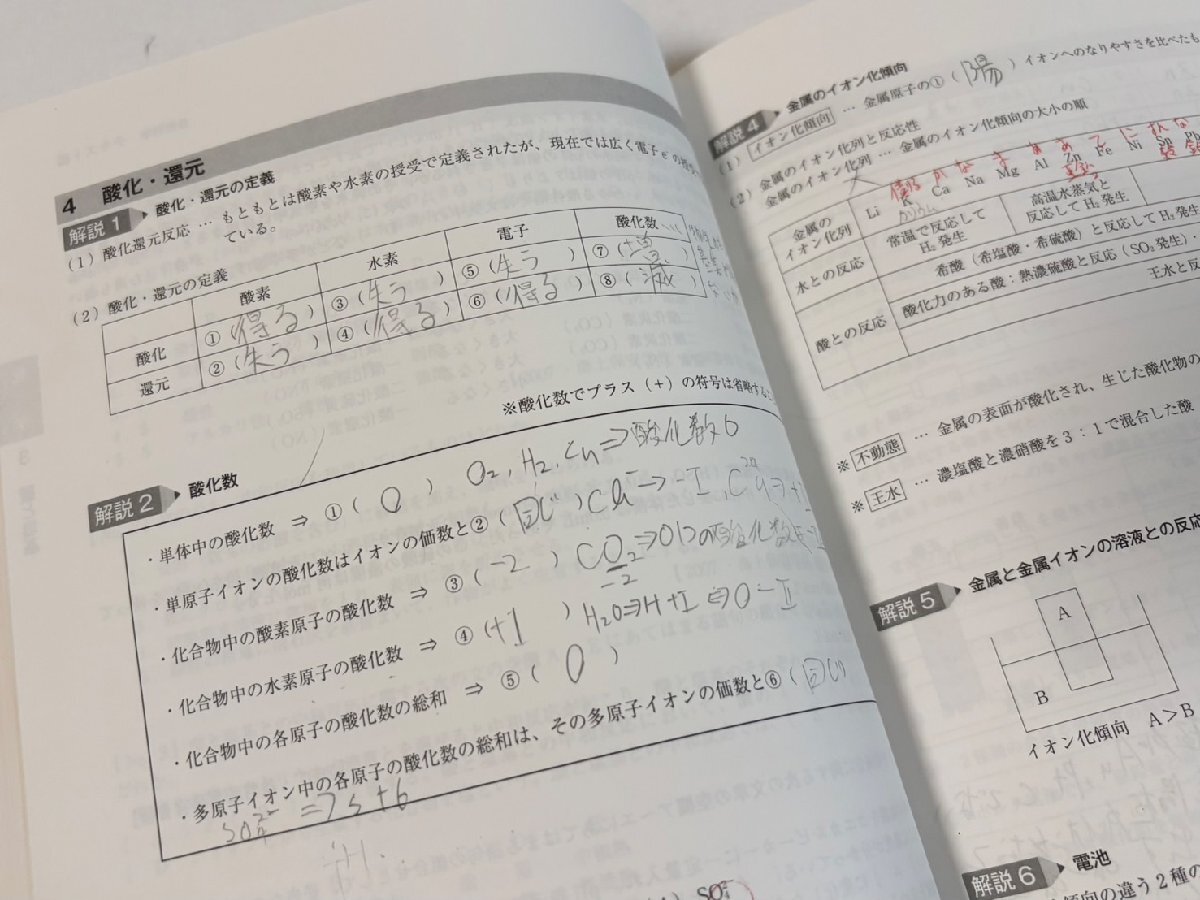 4 酸化・還元
解説1 酸化・還元の定義
(1) 酸化還元反応 … もともとは酸素や水素の授受で定義されたが、現在では広く電子e⁻の
ている。
(2) 酸化・還元の定義
酸素 水素 電子 酸化数
酸化 ①(得る) ③(失う) ⑤(失う) ⑦(増)
還元 ②(失う) ④(得る) ⑥(得る) ⑧(減)
※酸化数でプラス(+)の符号は省略する
解説2 酸化数
O₂, H₂, Cu⇒酸化数0
・単体中の酸化数 ⇒ ①(0)
・単原子イオンの酸化数はイオンの価数と②(同じ) Cl⁻⇒-I, Cu²⁺⇒+
・化合物中の酸素原子の酸化数 ⇒ ③(-2) CO₂⇒Oの酸化数 -2
・化合物中の水素原子の酸化数 ⇒ ④(+1) H₂O⇒H+I ⇒O-II
・化合物中の各原子の酸化数の総和 ⇒ ⑤(0)
・多原子イオン中の各原子の酸化数の総和は、その多原子イオンの価数と⑥(同じ)
SO₄²⁻ ⇒S+6
解説4 金属のイオン化傾向
(1) イオン化傾向 … 金属原子の①(陽)イオンへのなりやすさを比べたも
(2) 金属のイオン化列と反応性
金属のイオン化列 … 金属のイオン化傾向の大小の順
大
金属のイオン化列 Li K Ca Na Mg Al Zn Fe Ni Sn
カリウム
水との反応 常温で反応してH₂発生 高温水蒸気と反応してH₂発生
酸との反応 希酸(希塩酸・希硫酸)と反応してH₂発生
酸化力のある酸:熱濃硫酸と反応(SO₂発生)・
王水と反
※ 不動態 … 金属の表面が酸化され、生じた酸化物の
※ 王水 … 濃塩酸と濃硝酸を3:1で混合した酸
解説5 金属と金属イオンの溶液との反応
A
B
イオン化傾向 A>B
解説6 電池
傾向の違う2種の